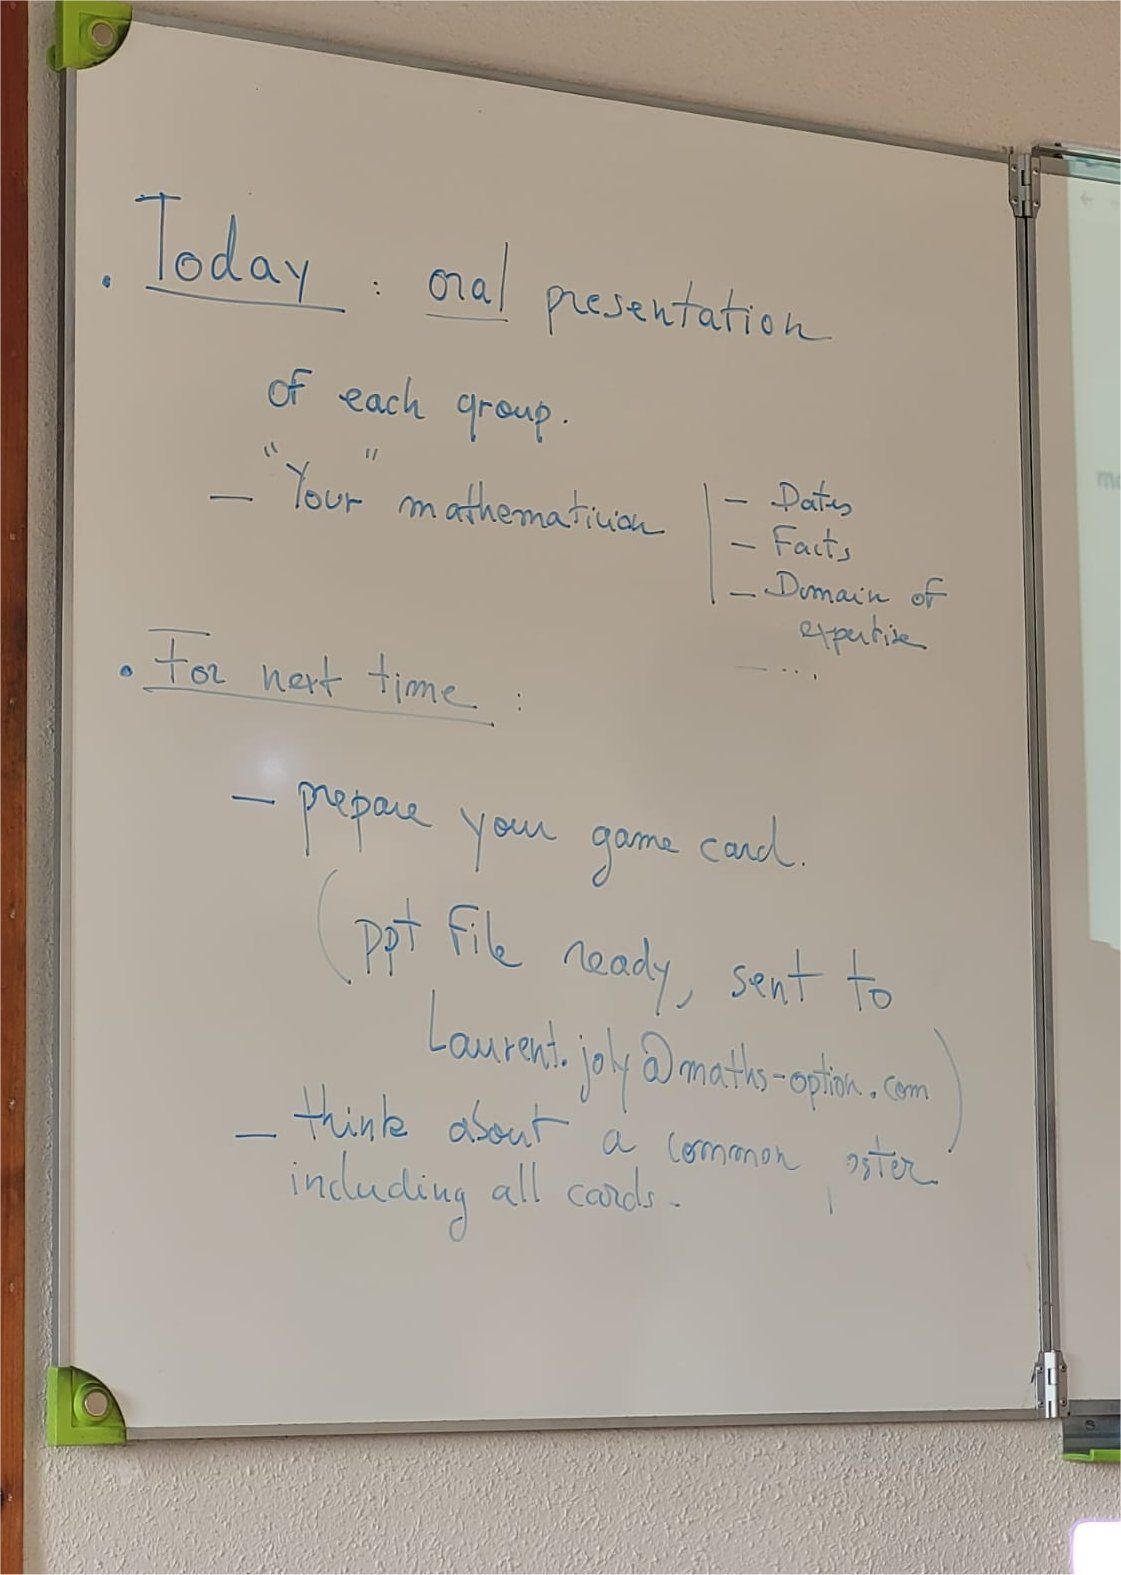 . Today : oral presentation
of each group.
— "Your" mathematician
— Dates
— Facts
— Domain of
expertise
— ...
• For next time :
— prepare your game card.
(ppt file ready, sent to
Laurent.joly@maths-option.com)
— think about a common poster
including all cards.